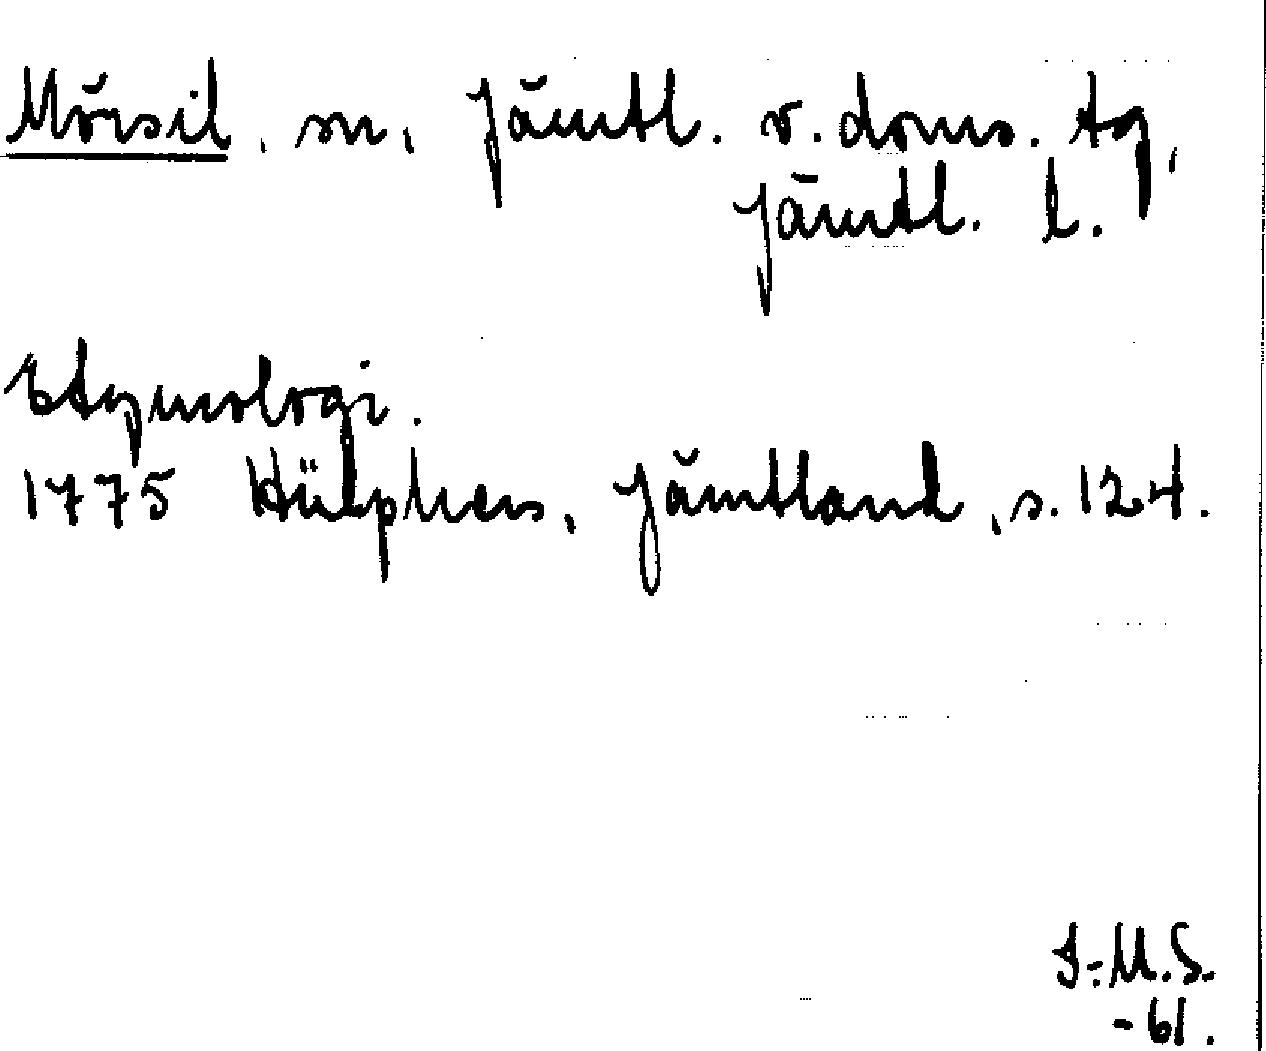 Mörsil, sn, Jämtl. v. doms. tg,
Jämtl. l.
Etymologi.
1775 Hülphers, Jämtland, s. 124.
I-M.S.
-61.